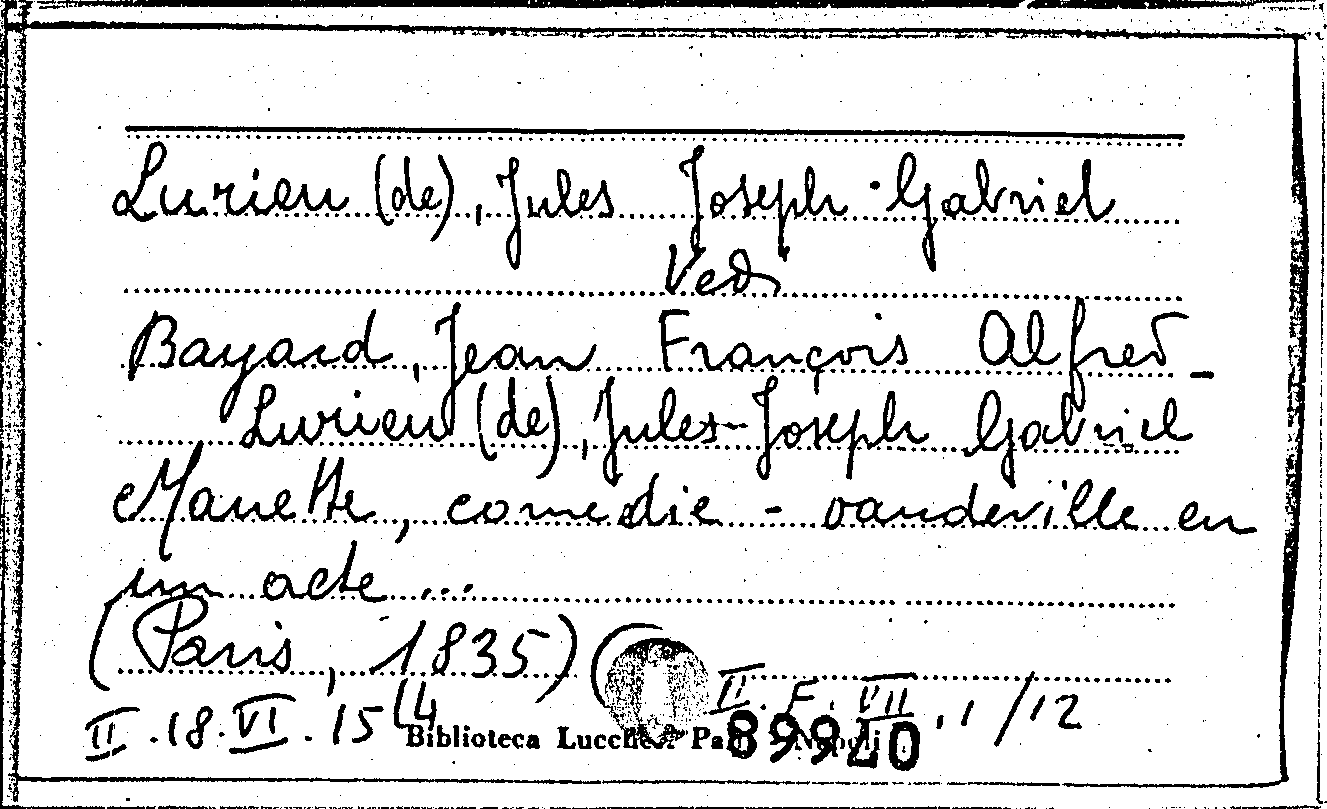 Lurieu (de), Jules Joseph-Gabriel
Vedi
Bayard, Jean François Alfred -
Lurieu (de), Jules-Joseph Gabriel
Manette, comedie - vaudeville en
un acte ...
(Paris, 1835)
II. F. VII. 1 /12
II.18.VI.15(4
Biblioteca Lucchesi Palli - Napoli
07668